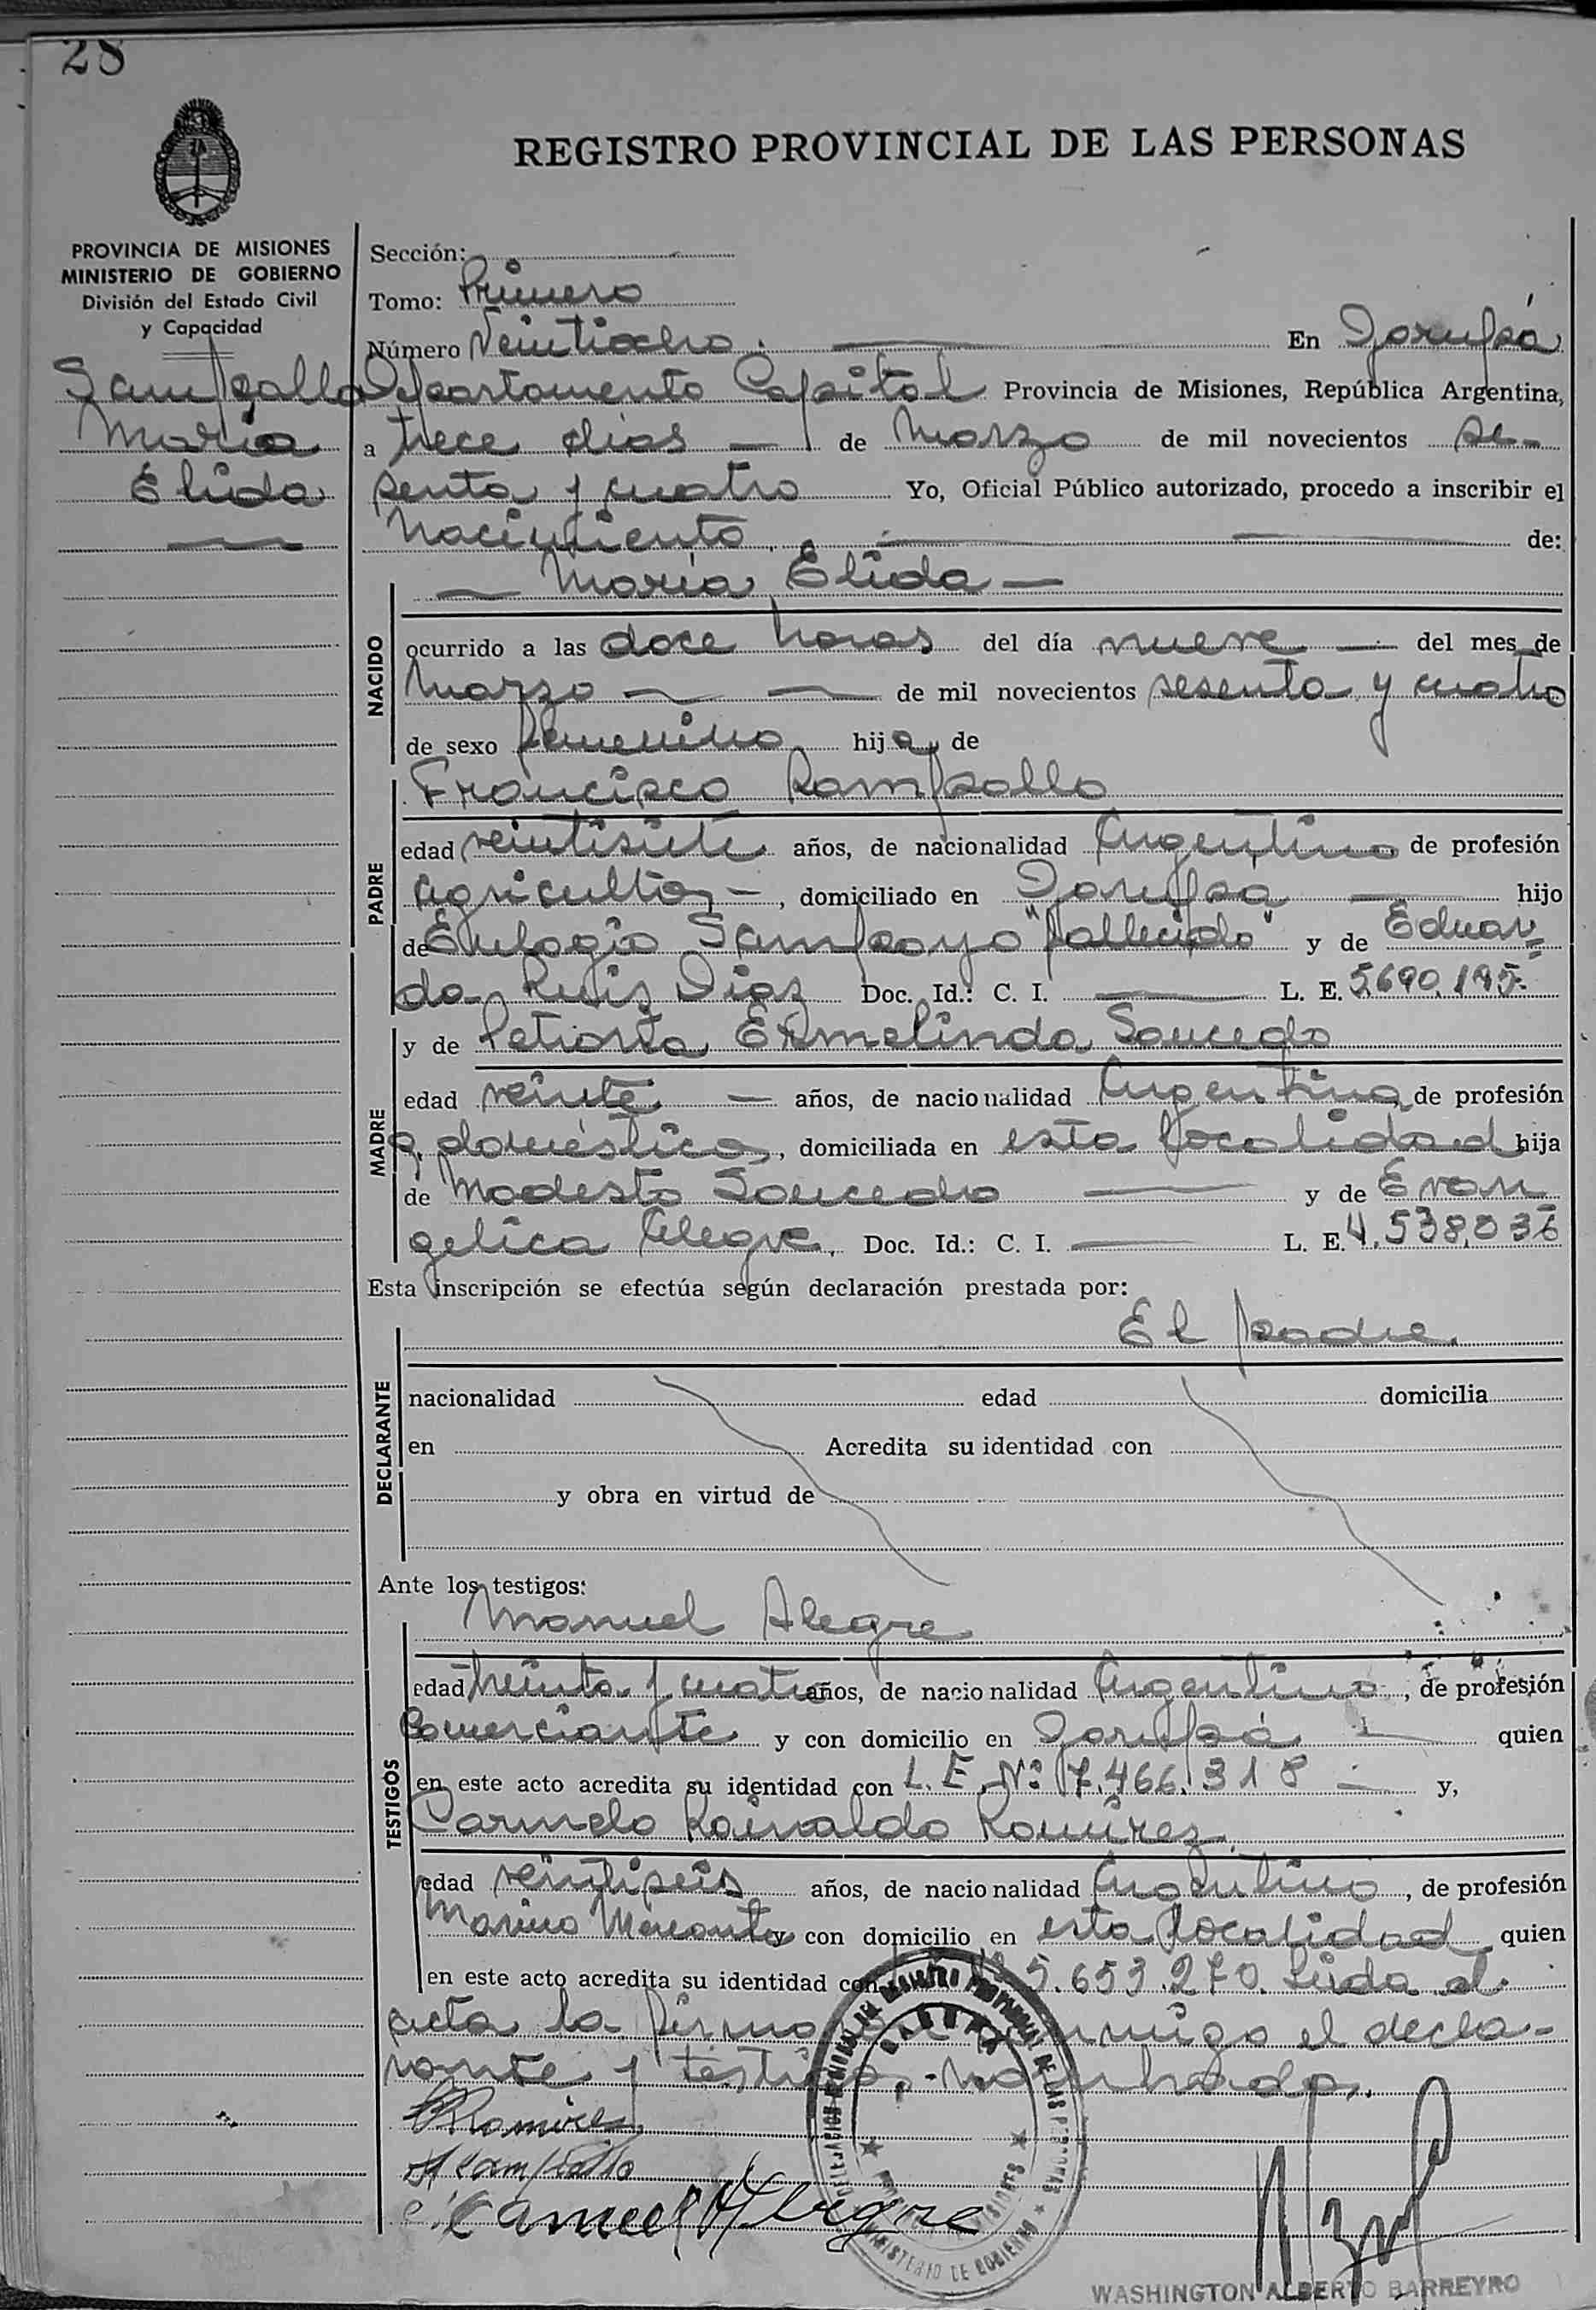 28
REGISTRO PROVINCIAL DE LAS PERSONAS
PROVINCIA DE MISIONES
MINISTERIO DE GOBIERNO
División del Estado Civil
y Capacidad
Sampallo
María
Elida
Sección:
Tomo: Primero
Número Veintiocho. En Garupá
Departamento Capital Provincia de Misiones, República Argentina,
a trece días de Marzo de mil novecientos se-
senta y cuatro Yo, Oficial Público autorizado, procedo a inscribir el
Nacimiento de:
María Elida
NACIDO
ocurrido a las doce horas del día nueve del mes de
Marzo de mil novecientos sesenta y cuatro
de sexo femenino hija de
Francisco Sampallo
PADRE
edad veintisiete años, de nacionalidad Argentino de profesión
agricultor, domiciliado en Garupá hijo
de Eulogio Sampayo "fallecido" y de Eduar=
da Ruiz Diaz Doc. Id.: C. I. L. E. 5.690.195.
y de Petrona Ermelinda Saucedo
MADRE
edad veinte años, de nacionalidad Argentina de profesión
q. doméstico, domiciliada en esta localidad hija
de Modesto Saucedo y de Evan
gelica Alegre, Doc. Id.: C. I. L. E. 4.538.036
Esta inscripción se efectúa según declaración prestada por:
El padre
DECLARANTE
nacionalidad edad domicilia
en Acredita su identidad con
y obra en virtud de
Ante los testigos:
Manuel Alegre
TESTIGOS
edad treinta y cuatro años, de nacionalidad Argentino, de profesión
Comerciante y con domicilio en Garupá quien
en este acto acredita su identidad con L. E. Nº 7.466.318 y,
Carmelo Rainaldo Ramirez
edad veintiseis años, de nacionalidad Argentino, de profesión
Marino Mercante y con domicilio en esta localidad quien
en este acto acredita su identidad con 5.653.270. Leída el
acta la firma conmigo el decla-
rante y testigos nombrados.
Ramirez
Sampallo
Manuel Alegre
GARUPA
MINISTERIO DE GOBIERNO
WASHINGTON ALBERTO BARREYRO